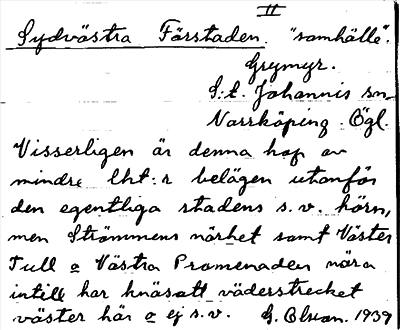 II
Sydvästra Förstaden. "samhälle".
Grymyr.
S:t. Johannis sn.
Norrköping. Ögl.
Visserligen är denna hop av
mindre lht:r belägen utanför
den egentliga stadens s.v. hörn,
men Strömmens närhet samt Väster
Tull o Västra Promenaden nära
intill har knäsatt väderstrecket
väster här o ej s.v. G. Olson. 1939